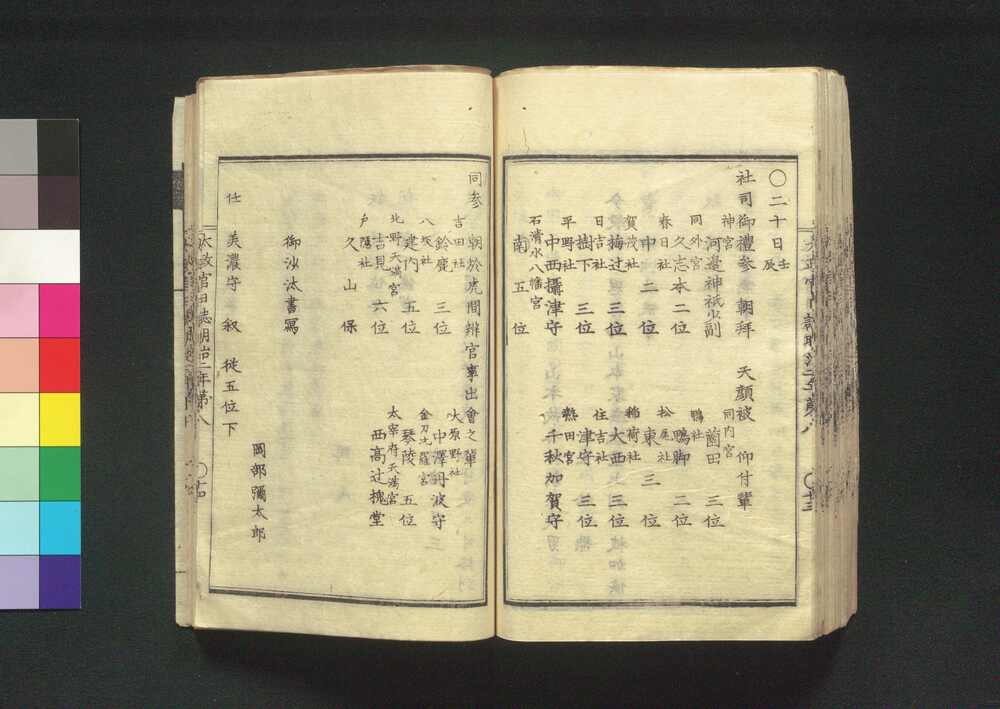 〇二十日壬辰
社司御禮參朝拜 天顏被 仰付輩
神宮 河邊神祇少副
同内宮 薗田 三位
同外宮 久志本二位
鴨社 鴨脚 二位
春日社 中 二位
松尾社 東 三位
賀茂社 梅辻 三位
稲荷社 大西 三位
日吉社 樹下 三位
住吉社 津守 三位
平野社 中西攝津守
熱田宮 千秋加賀守
石清水八幡宮 南 五位
同參 朝於虎間辨官事出會之輩
吉田社 鈴鹿 三位
大原野社 中澤丹波守
八坂社 建内 五位
金刀比羅宮 琴陵 五位
北野天滿宮 吉見 六位
太宰府天滿宮 西高辻槐堂
戸隱社 久山 保
御沙汰書寫
岡部彌太郎
任 美濃守 叙 從五位下
太政官日誌明治二年第八 〇十四